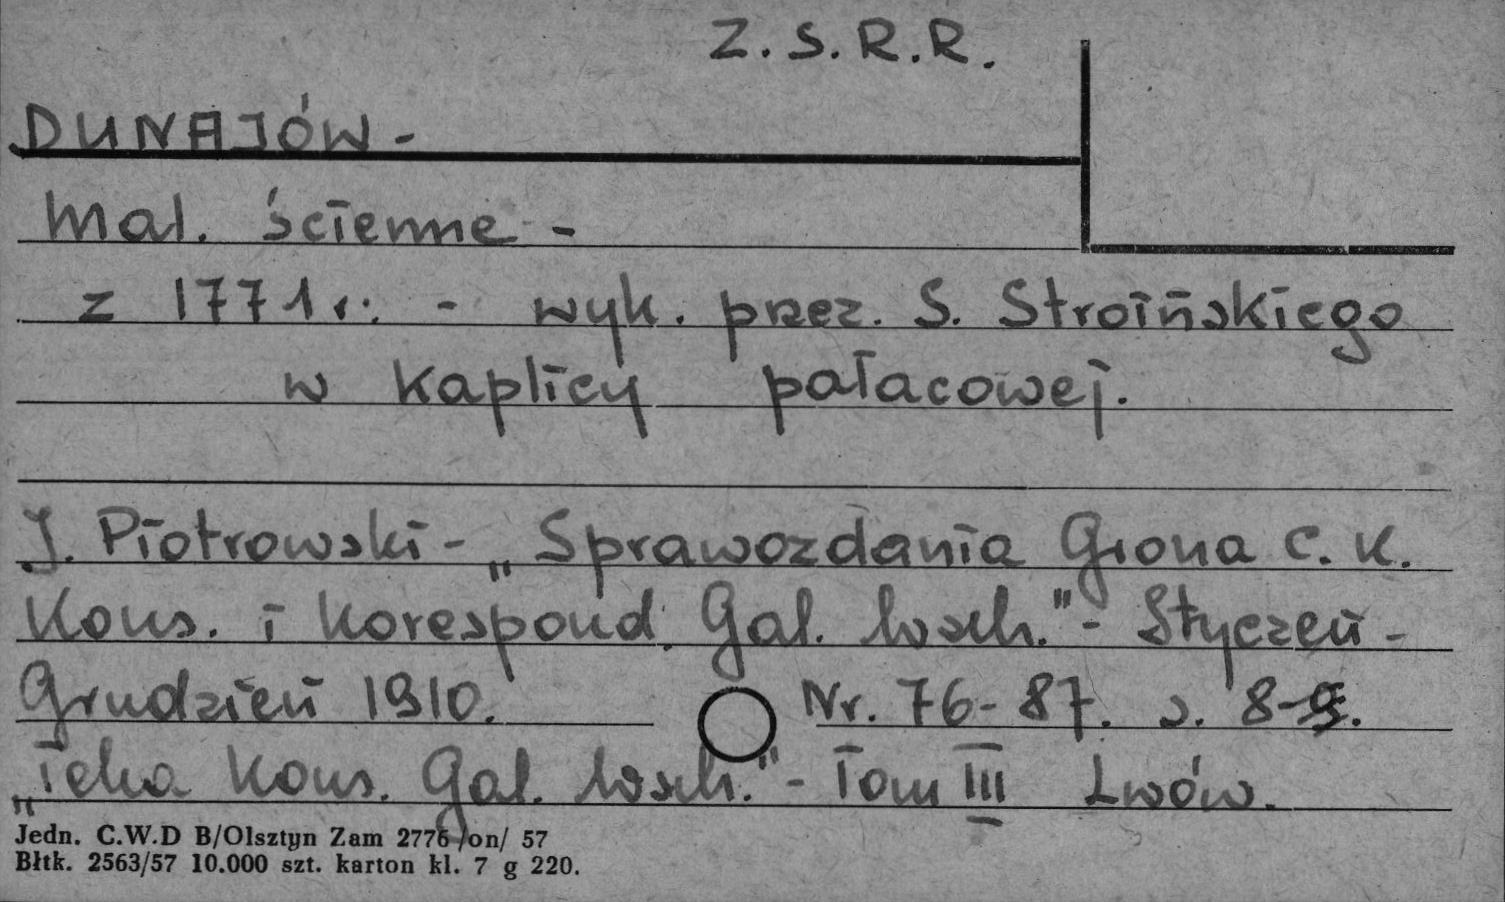 Z.S.R.R.
DUNAJÓW -
Mal. ścienne -
z 1771 r. - wyk. przez. S. Stroińskiego
w kaplicy pałacowej.
J. Piotrowski - „Sprawozdania Grona C. K.
Kons. i Korespond. Gal. Wsch." - Styczeń -
Grudzień 1910. Nr. 76-87. s. 8-9.
„Teka Kons. Gal. Wsch." - Tom III Lwów.
Jedn. C.W.D B/Olsztyn Zam 2776/on/ 57
Błtk. 2563/57 10.000 szt. karton kl. 7 g 220.